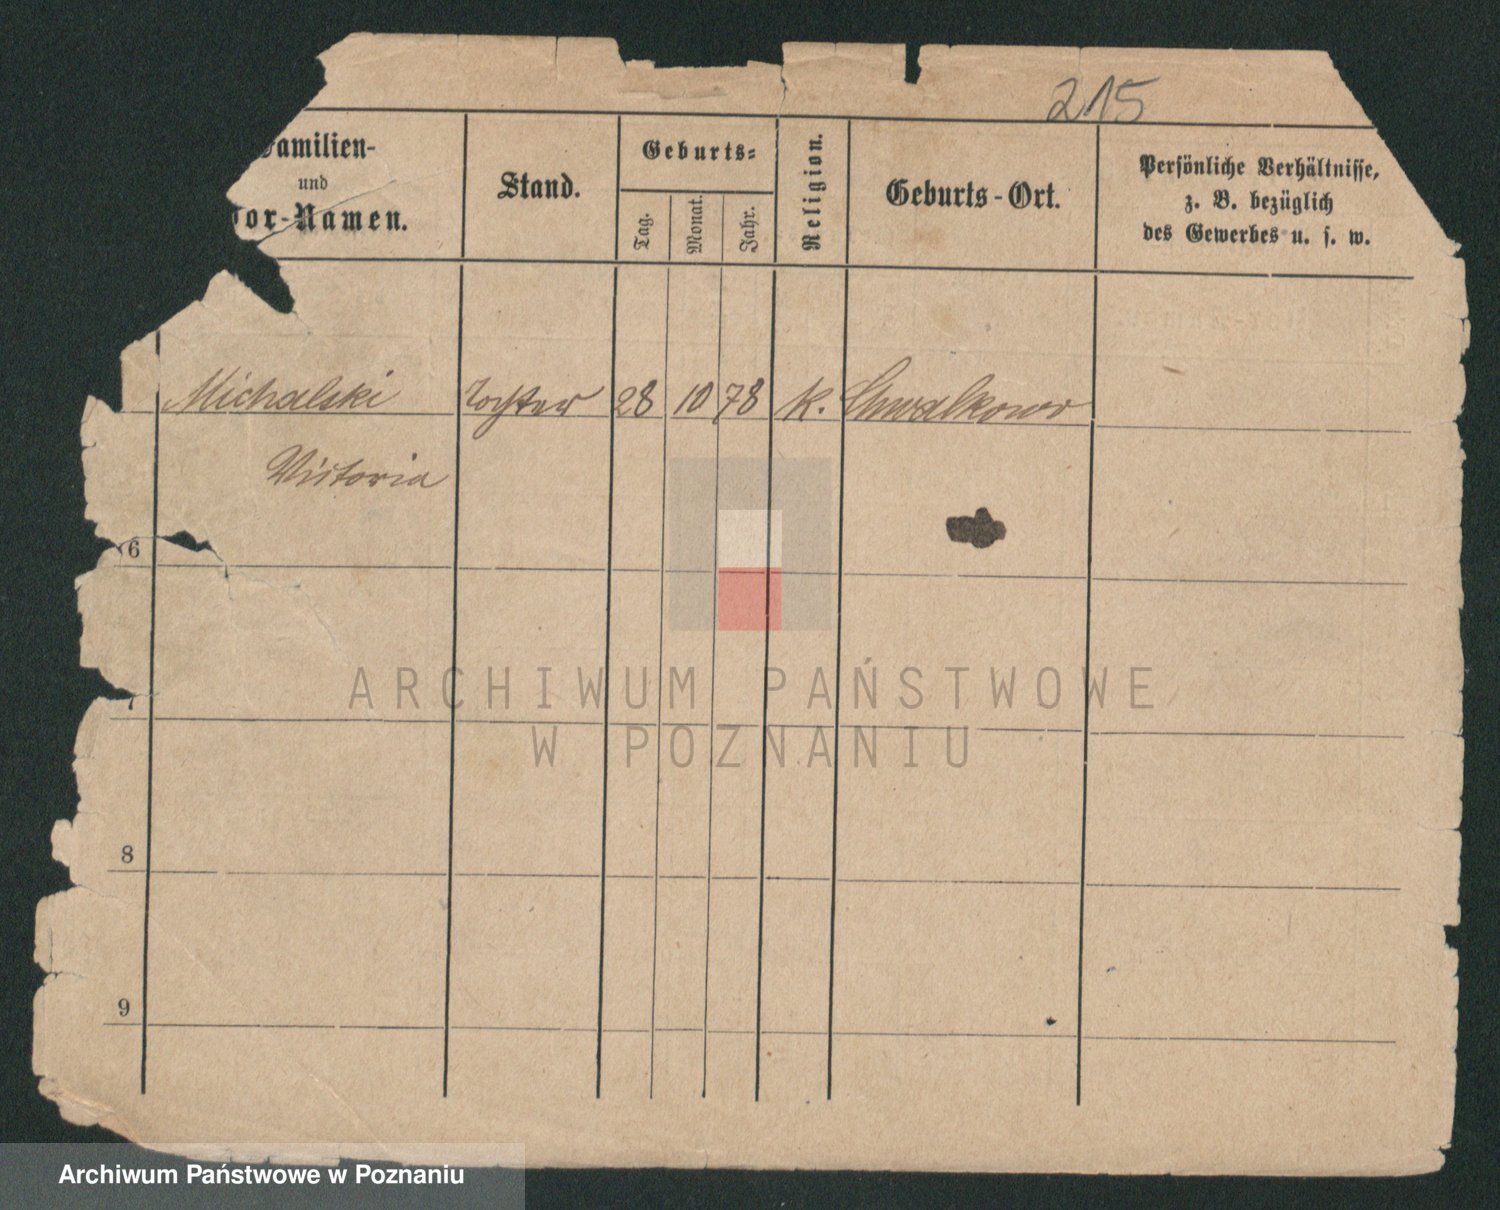 215
Familien-
und
Vor-Namen.
Stand.
Geburts-
Tag.
Monat.
Jahr.
Religion.
Geburts-Ort.
Persönliche Verhältnisse,
z. B. bezüglich
des Gewerbes u. s. w.
Michalski Tochter 28 10 78 K. Chwalkowo
Victoria
6
7
8
9
ARCHIWUM PAŃSTWOWE
W POZNANIU
Archiwum Państwowe w Poznaniu